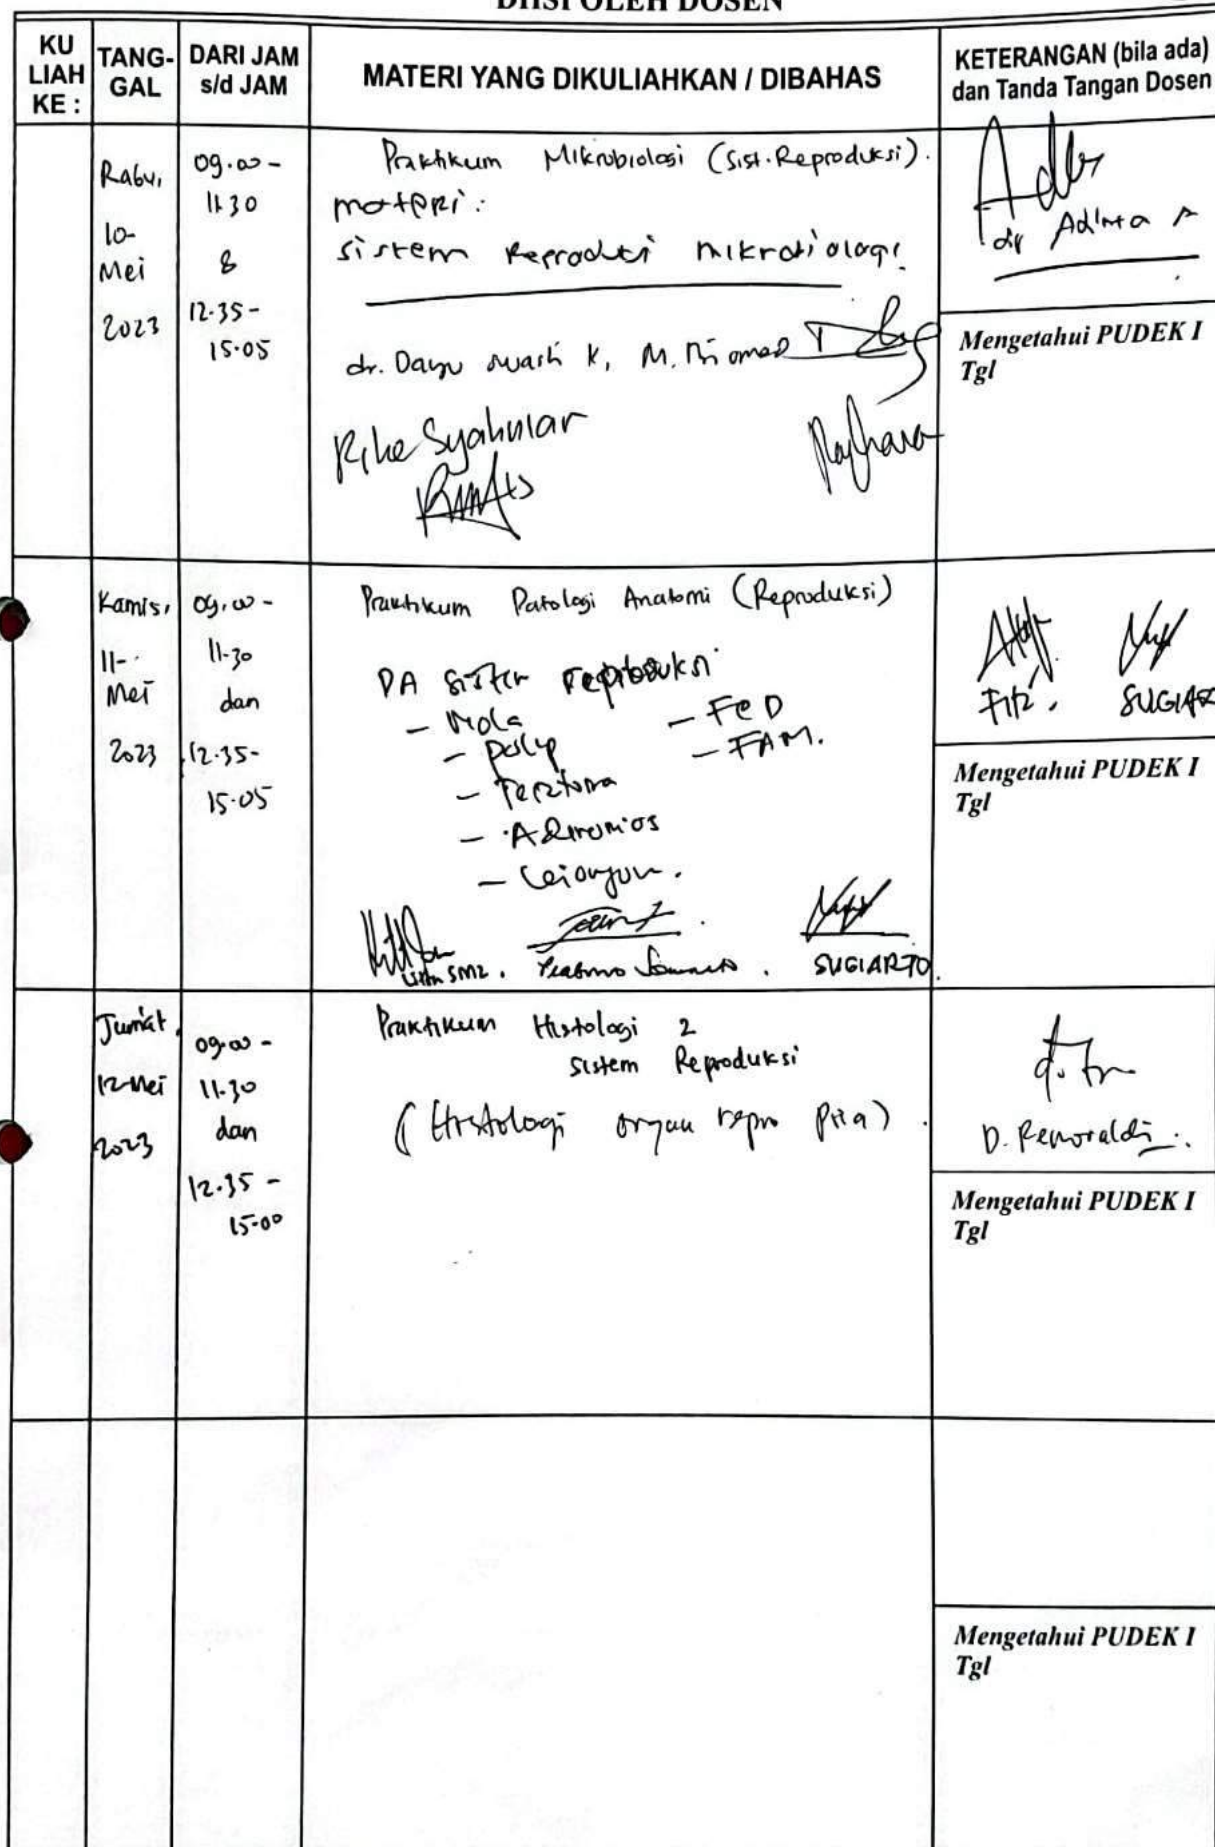 DIISI OLEH DOSEN
KU
LIAH
KE :
TANG-
GAL
DARI JAM
s/d JAM
MATERI YANG DIKULIAHKAN / DIBAHAS
KETERANGAN (bila ada)
dan Tanda Tangan Dosen
Rabu,
10-
Mei
2023
09.00 -
11.30
&
12.35 -
15.05
Praktikum Mikrobiologi (Sist. Reproduksi).
materi:
sistem
dr. Dayu Swasti K, M. Biomed
Rike Syahniar
dr Adinta A
Mengetahui PUDEK I
Tgl
Kamis,
11-
Mei
2023
09.00 -
11.30
dan
12.35 -
15.05
Praktikum Patologi Anatomi (Reproduksi)
PA Sistem reproduksi
- Mola
- FCD
- polip
- FAM.
- Teratoma
SUGIARTO
SUGIAR
Mengetahui PUDEK I
Tgl
Jumat,
12 Mei
2023
09.00 -
11.30
dan
12.35 -
15.00
Praktikum Histologi 2
Sistem Reproduksi
(Histologi organ repro pria).
Mengetahui PUDEK I
Tgl
Mengetahui PUDEK I
Tgl